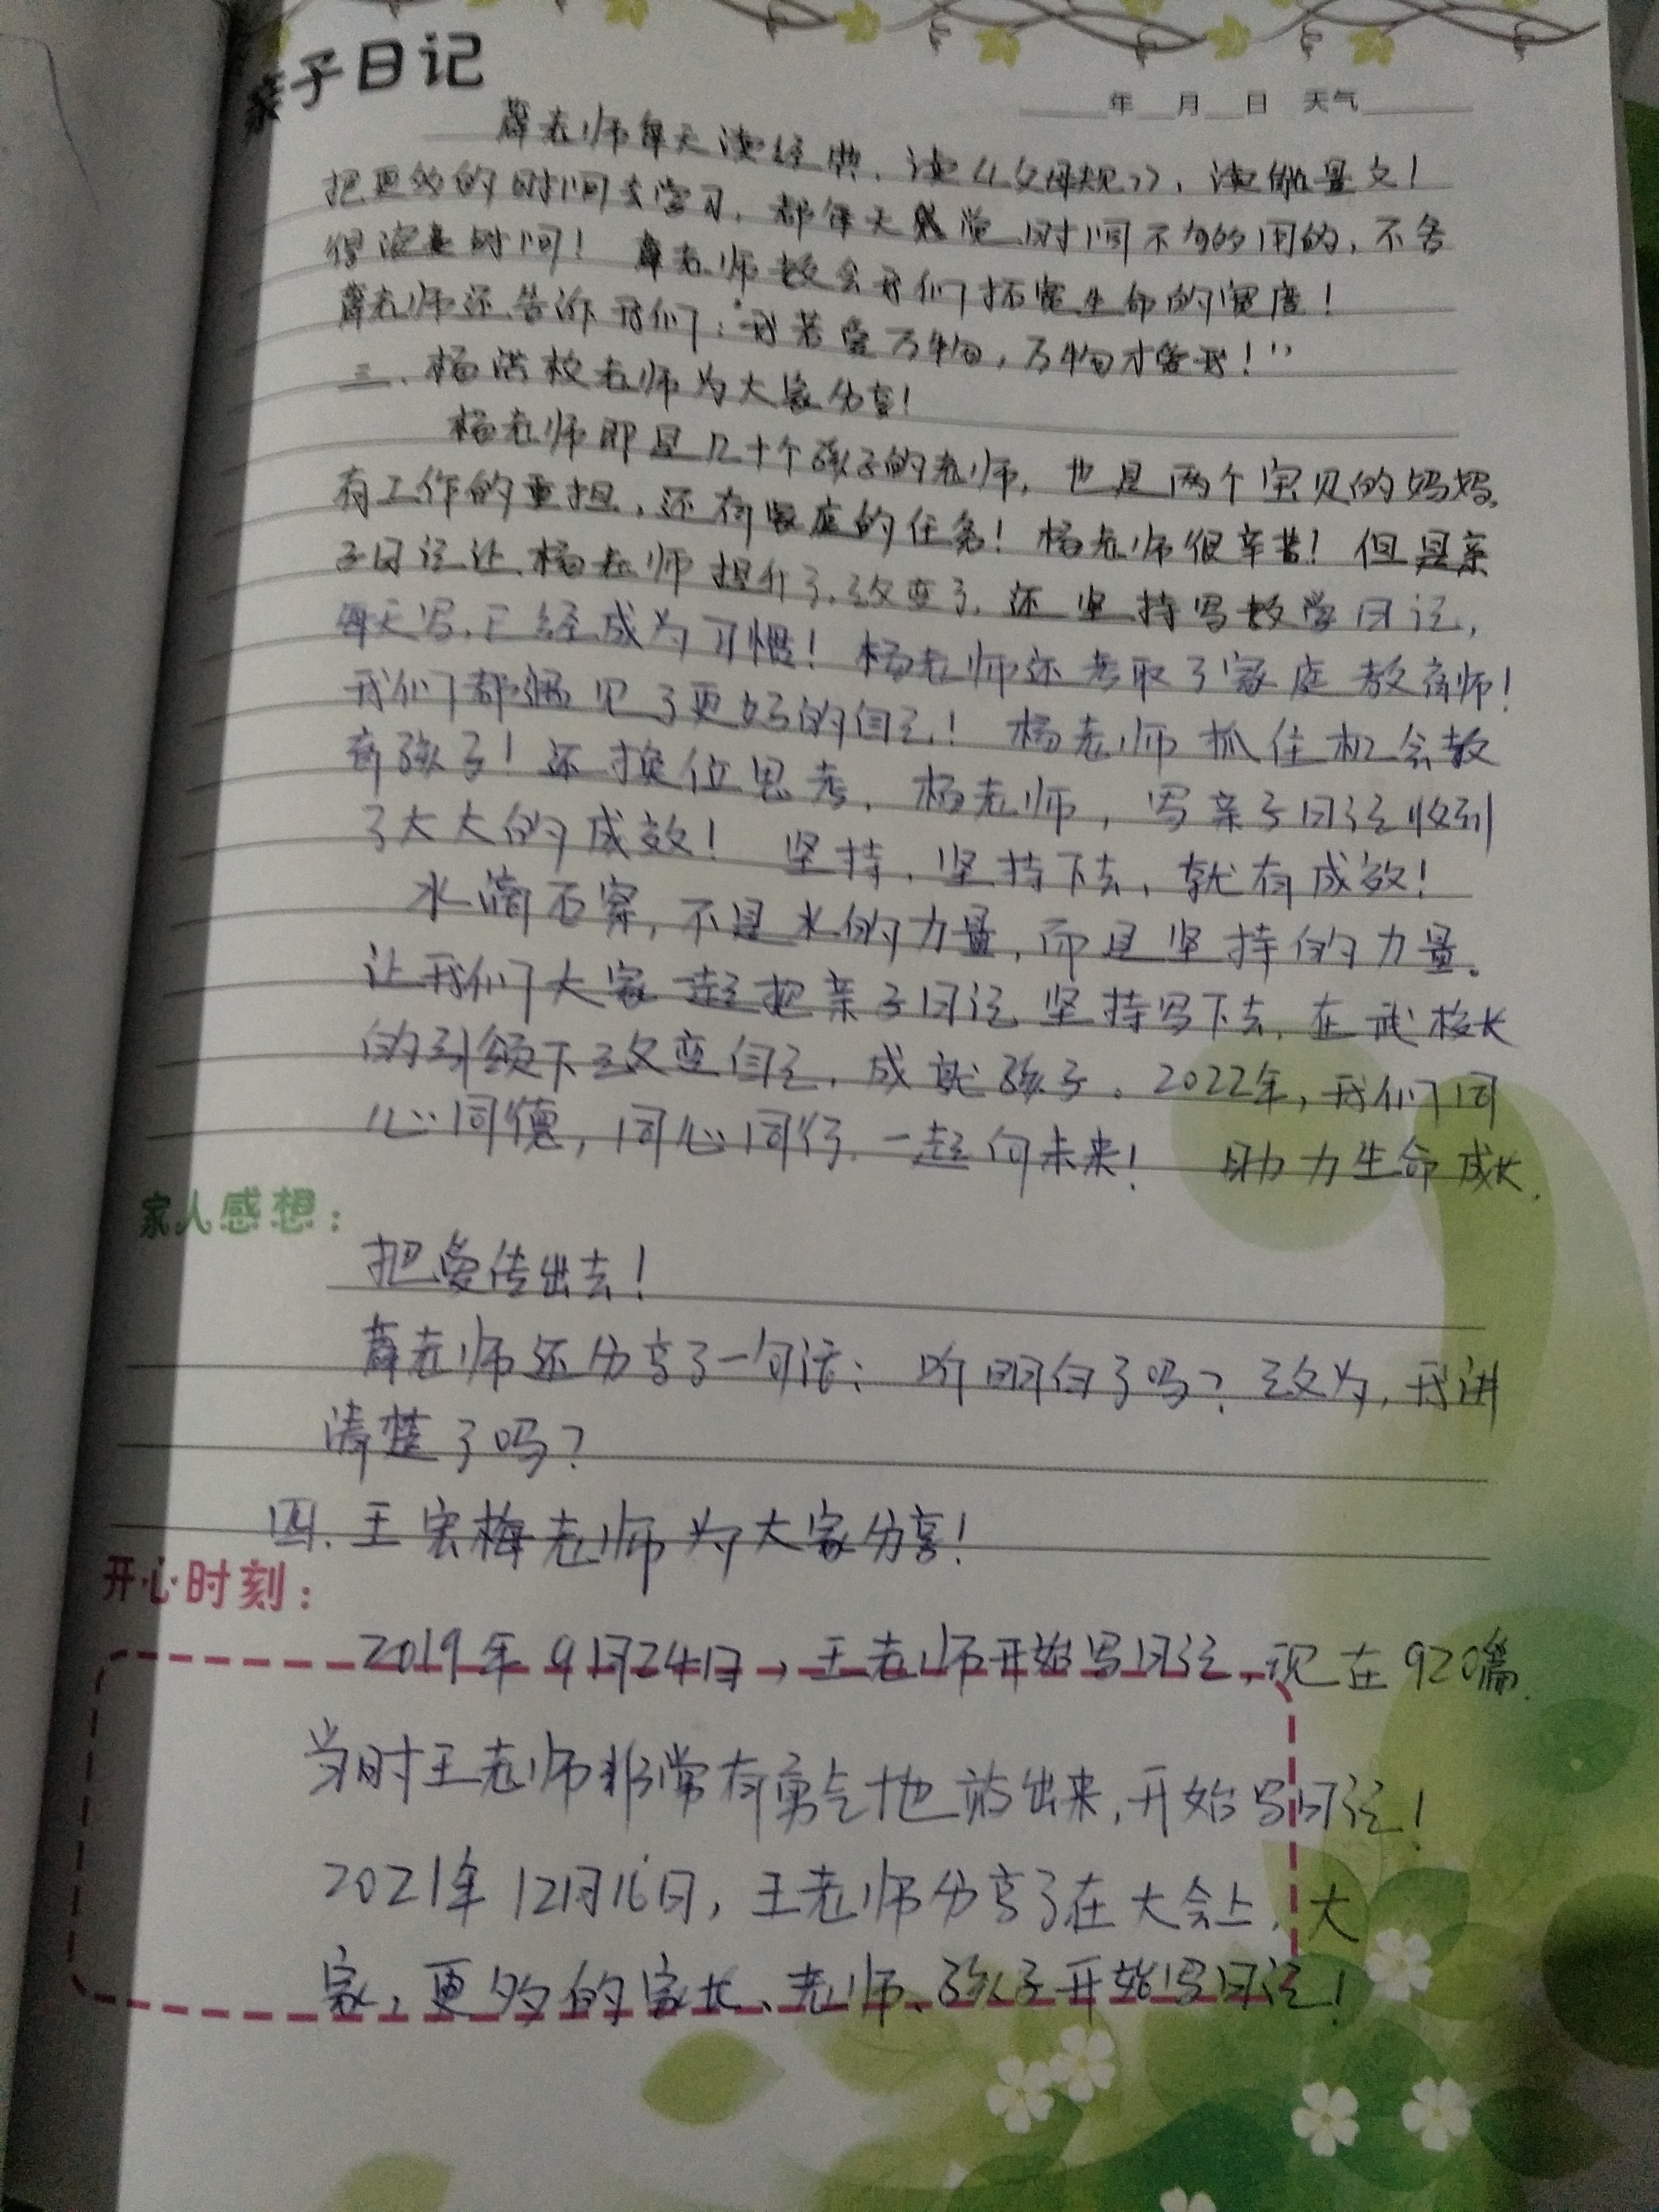 亲子日记
年 月 日 天气
薛老师每天读经典，读《父母规》，读能量文！
把更多的时间去学习，都每天感觉时间不够用的，不舍
得浪费时间！薛老师教会我们拓宽生命的宽度！
薛老师还告诉我们："我若爱万物，万物才爱我！"
三、杨洪枚老师为大家分享！
杨老师即是几十个孩子的老师，也是两个宝贝的妈妈。
有工作的重担，还有家庭的任务！杨老师很辛苦！但是亲
子日记让杨老师提升了，改变了，还坚持写教学日记，
每天写，已经成为习惯！杨老师还考取了家庭教育师！
我们都遇见了更好的自己！杨老师抓住机会教
育孩子！还换位思考，杨老师，写亲子日记收到
了大大的成效！坚持，坚持下去，就有成效！
水滴石穿，不是水的力量，而是坚持的力量。
让我们大家一起把亲子日记坚持写下去，在武校长
的引领下改变自己，成就孩子。2022年，我们同
心同德，同心同行，一起向未来！助力生命成长。
家人感想：
把爱传出去！
薛老师还分享了一句话：听明白了吗？改为，我讲
清楚了吗？
四、王宏梅老师为大家分享！
开心时刻：
2019年9月24日，王老师开始写日记，现在920篇。
当时王老师非常有勇气地站出来，开始写日记！
2021年12月16日，王老师分享了在大会上，大
家，更多的家长、老师、孩子开始写日记！